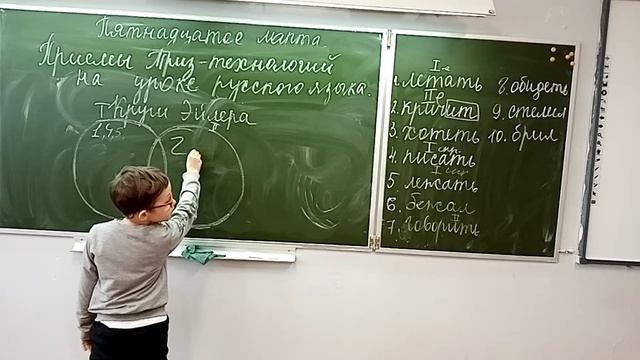 Пятнадцатое марта
Приемы Триз-технологий
на уроке русского языка.
Круги Эйлера
1,4,5
II
2
I
1. летать
II
2. кричит
3. хотеть
I спр.
4. писать
I спр.
5. лежать
6. бежал
II
7. говорить
8. обидеть
9. стелил
10. брил